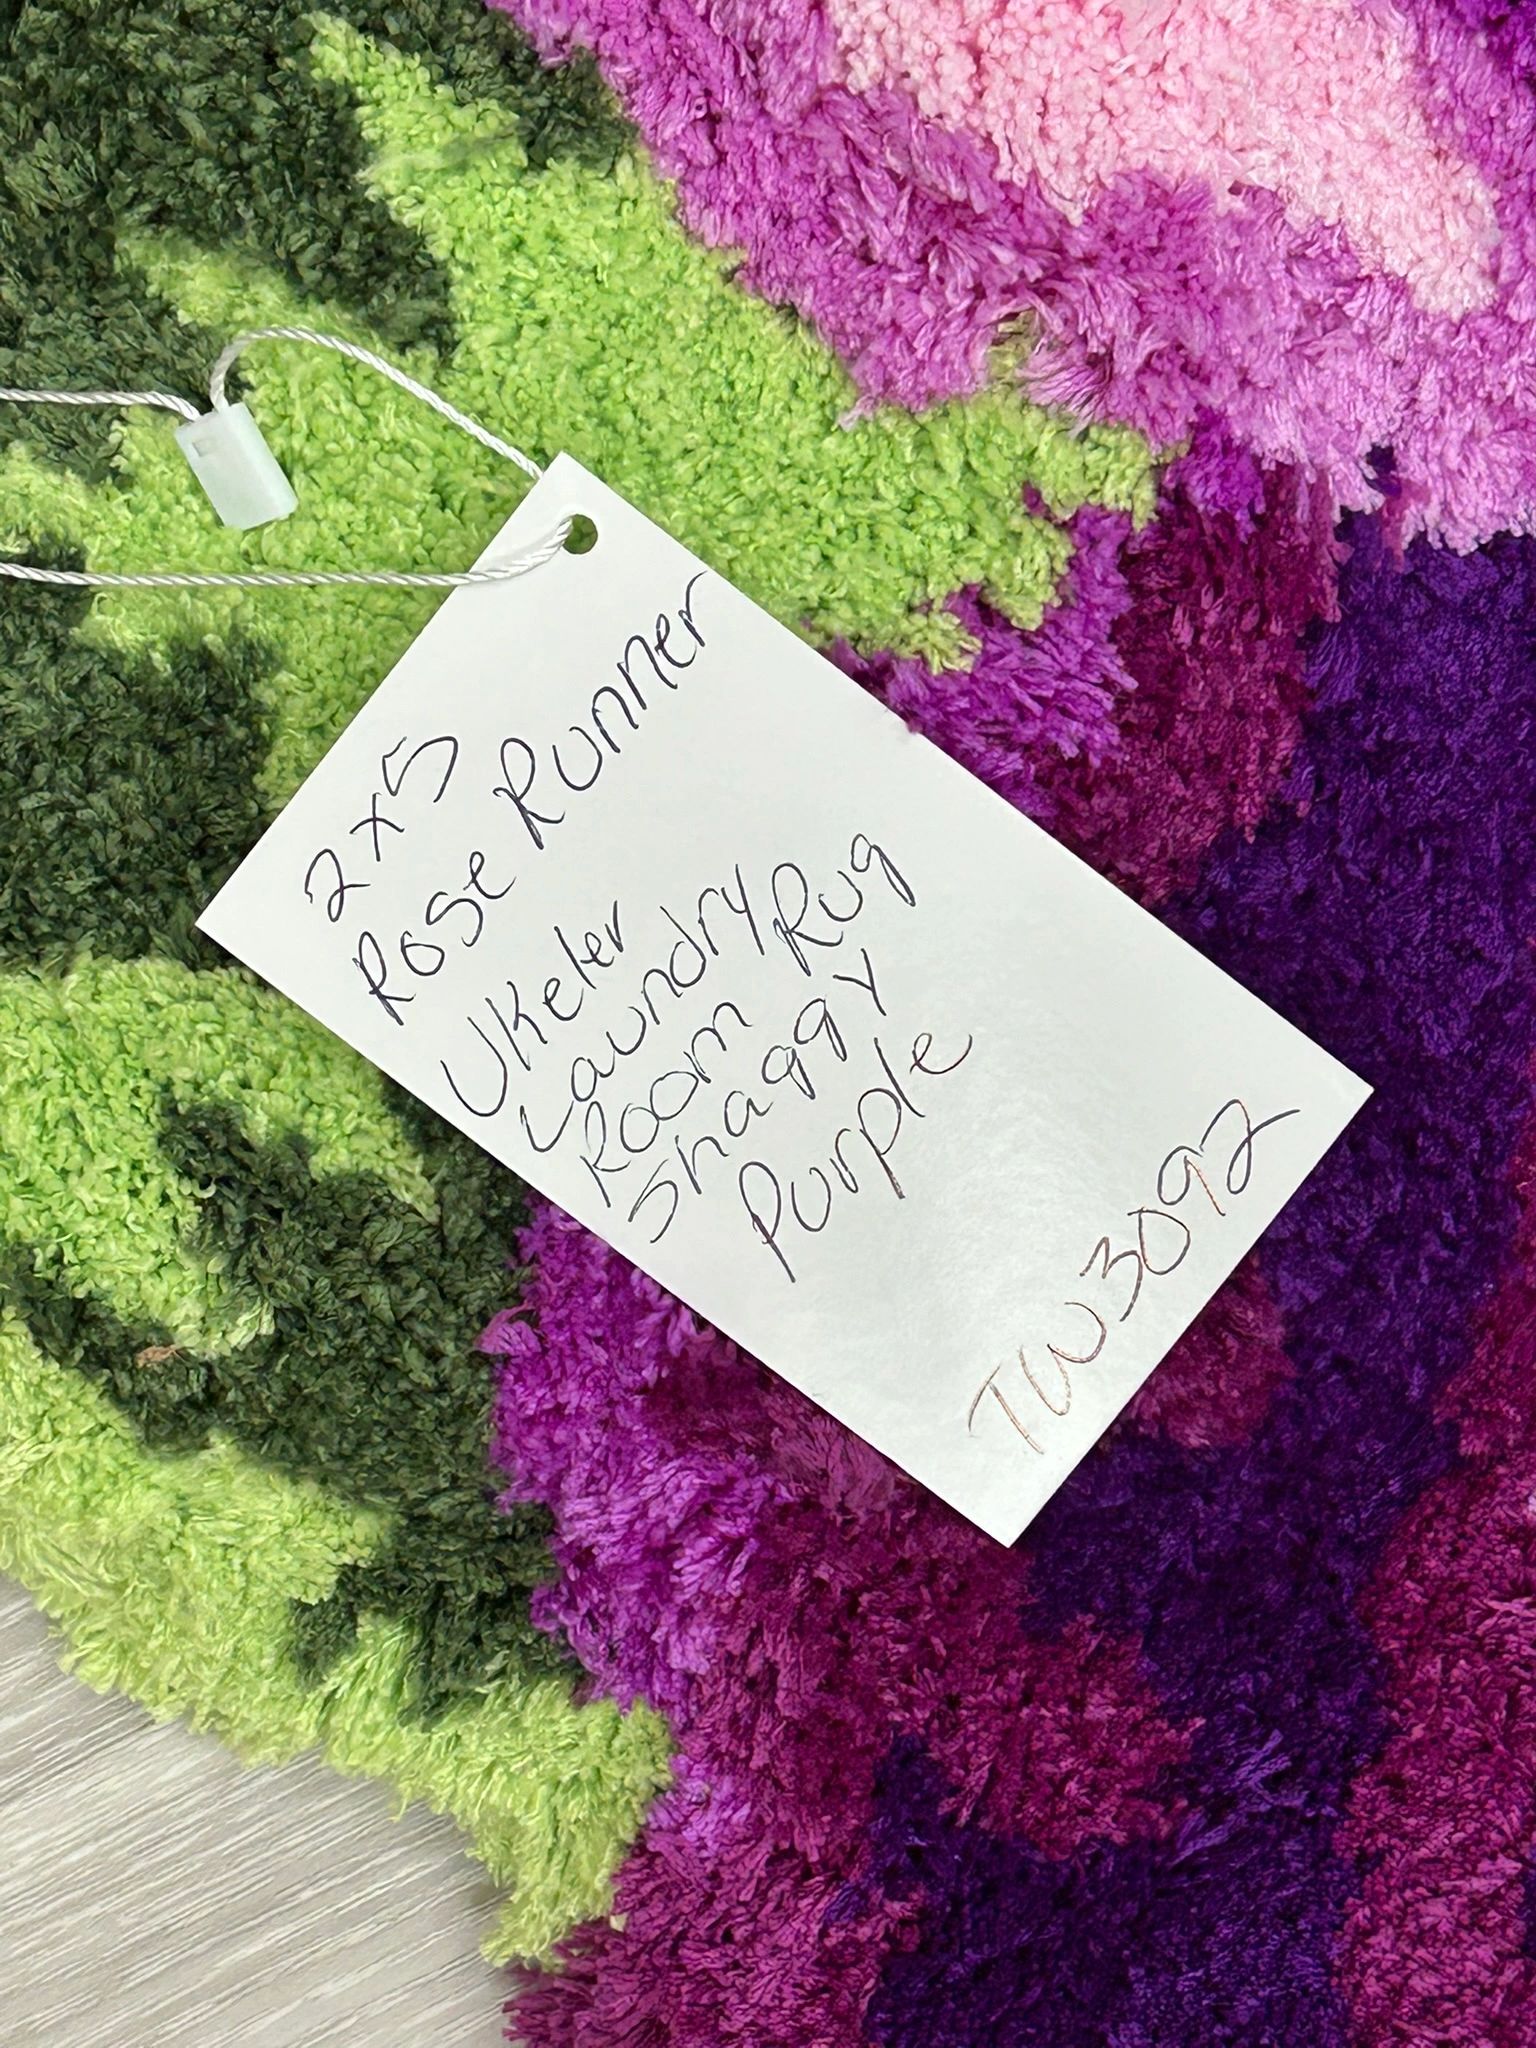 2x5
Rose Runner
UKeler
Laundry
Room Rug
Shaggy
Purple
TW3092